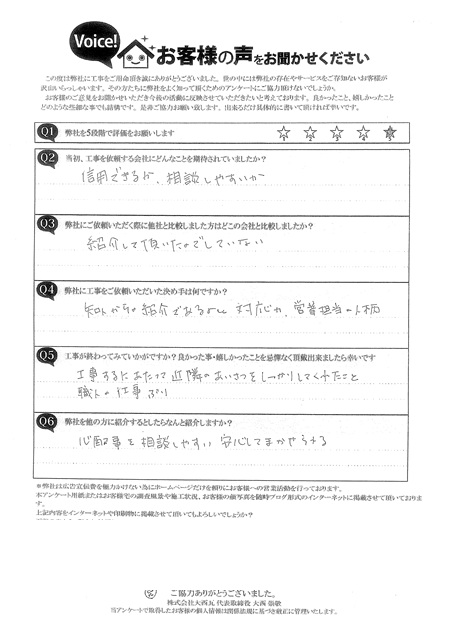 Voice!
お客様の声をお聞かせください
この度は弊社に工事をご用命頂き誠にありがとうございました。世の中には弊社の存在やサービスをご存知ないお客様が
沢山いらっしゃいます。その方たちに弊社をよく知って頂くためのアンケートにご協力頂けないでしょうか。
お客様のご意見をお聞かせいただき今後の活動に反映させていただきたいと考えております。良かったこと、嬉しかったこと
どのような些細な事でも結構です。是非ご協力お願い致します。出来るだけ具体的に書いて頂ければ幸いです。
Q1 弊社を5段階で評価をお願いします
Q2 当初、工事を依頼する会社にどんなことを期待されていましたか?
信用できるか、相談しやすいか
Q3 弊社にご依頼いただく際に他社と比較しました方はどこの会社と比較しましたか?
紹介して頂いたのでしていない
Q4 弊社に工事をご依頼いただいた決め手は何ですか?
知人からの紹介である 対応力、営業担当の人柄
Q5 工事が終わってみていかがですか?良かった事・嬉しかったことを忌憚なく頂戴出来ましたら幸いです
工事するにあたって近隣のあいさつをしっかりしてくれたこと
職人の仕事ぶり
Q6 弊社を他の方に紹介するとしたらなんと紹介しますか?
心配事を相談しやすい 安心してまかせられる
※弊社は広告宣伝費を極力かけない為にホームページだけを頼りにお客様への営業活動を行っております。
本アンケート用紙またはお客様宅の調査風景や施工状況、お客様の顔写真を随時ブログ形式のインターネットに掲載させて頂いております。
上記内容をインターネットや印刷物に掲載させて頂いてもよろしいでしょうか?
ご協力ありがとうございました。
株式会社大西瓦 代表取締役 大西
当アンケートで取得したお客様の個人情報は関係法規に基づき厳正に管理いたします。